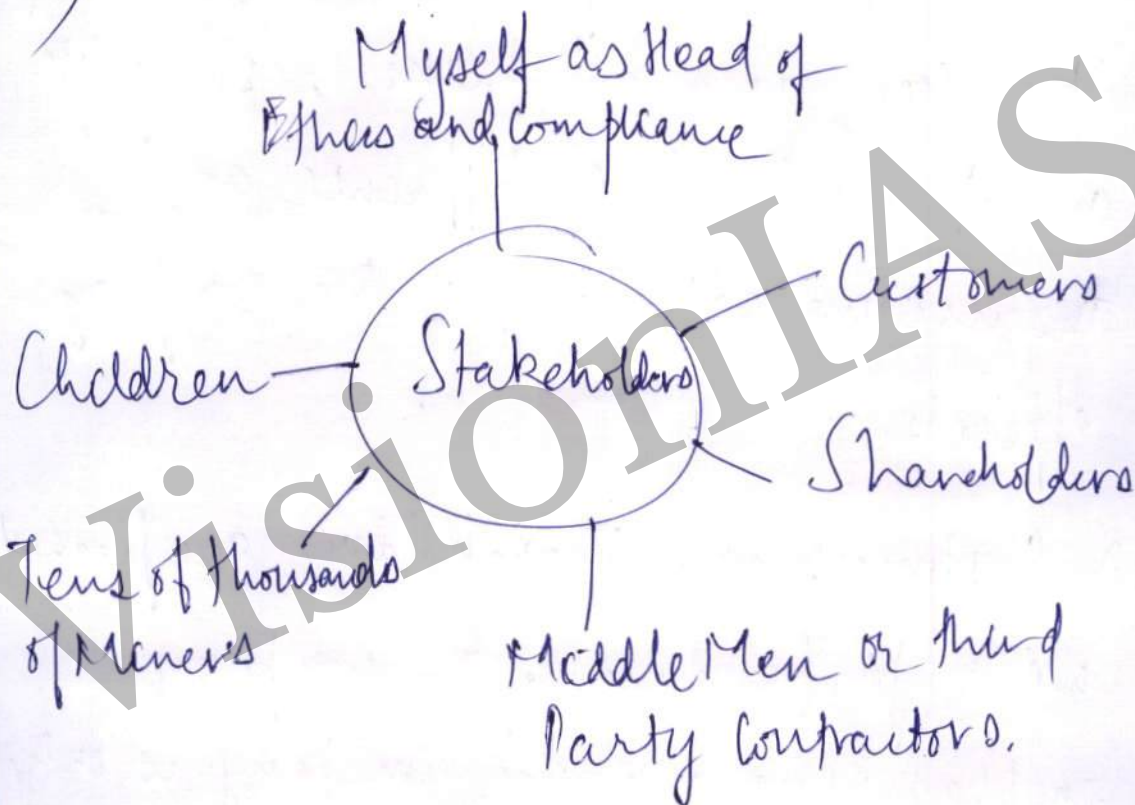 Myself as Head of
Ethics and Compliance
Customers
Children
Stakeholders
Shareholders
Tens of thousands
of Miners
Middle Men or third
Party Contractors.
VisionIAS